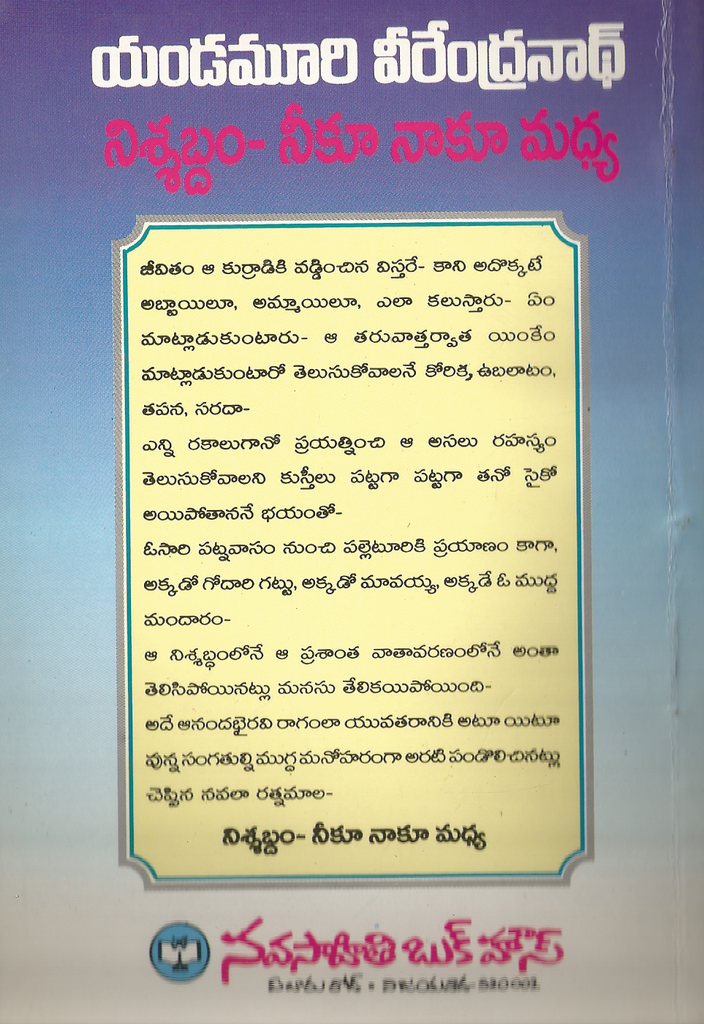 యండమూరి వీరేంద్రనాథ్
నిశ్శబ్దం- నీకూ నాకూ మధ్య
జీవితం ఆ కుర్రాడికి వడ్డించిన విస్తరే- కాని అదొక్కటే
అబ్బాయిలూ, అమ్మాయిలూ, ఎలా కలుస్తారు- ఏం
మాట్లాడుకుంటారు- ఆ తరువాత్తర్వాత యింకేం
మాట్లాడుకుంటారో తెలుసుకోవాలనే కోరిక, ఉబలాటం,
తపన, సరదా-
ఎన్ని రకాలుగానో ప్రయత్నించి ఆ అసలు రహస్యం
తెలుసుకోవాలని కుస్తీలు పట్టగా పట్టగా తనో సైకో
అయిపోతాననే భయంతో-
ఓసారి పట్నవాసం నుంచి పల్లెటూరికి ప్రయాణం కాగా,
అక్కడో గోదారి గట్టు, అక్కడో మావయ్య, అక్కడే ఓ ముద్ద
మందారం-
ఆ నిశ్శబ్ధంలోనే ఆ ప్రశాంత వాతావరణంలోనే అంతా
తెలిసిపోయినట్లు మనసు తేలికయిపోయింది-
అదే ఆనందభైరవి రాగంలా యువతరానికి అటూ యిటూ
వున్న సంగతుల్ని ముగ్ధ మనోహరంగా అరటి పండొలిచినట్లు
చెప్పిన నవలా రత్నమాల-
నిశ్శబ్దం- నీకూ నాకూ మధ్య
నవసాహితి బుక్ హౌస్
ఏలూరు రోడ్ • విజయవాడ-520002